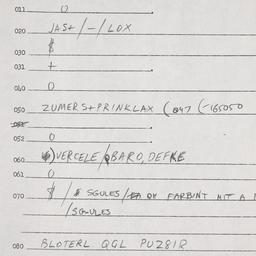 011 0
020 JAS+/-/LOX
030 $
031 +
040 0
050 ZUMERS+PRINKLAX (047 (-165050
052 0
060 VERCELE/ØBARO, DEFKE
061 0
070 $/$ SGULES/ OY FARBINT HIT A
/SGULES
080 BLOTERL QGL PUZ81R